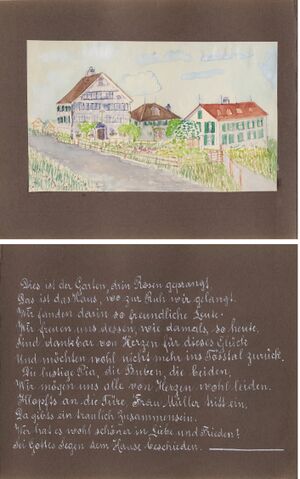 Dies ist der Garten, drin Rosen geprangt,
Das ist das Haus, wo zur Ruh wir gelangt.
Wir fanden darin so freundliche Leute.
Wir freuen uns dessen, wie damals, so heute,
Sind dankbar von Herzen für dieses Glück
Und möchten wohl nicht mehr ins Tösstal zurück.
Die lustige Pia, die Buben, die beiden,
Wir mögen uns alle von Herzen wohl leiden.
Klopfts an die Türe, Frau Müller tritt ein,
Da gibts ein traulich Zusammensein.
Wer hat es wohl schöner in Liebe und Frieden?
Sei Gottes Segen dem Hause beschieden.